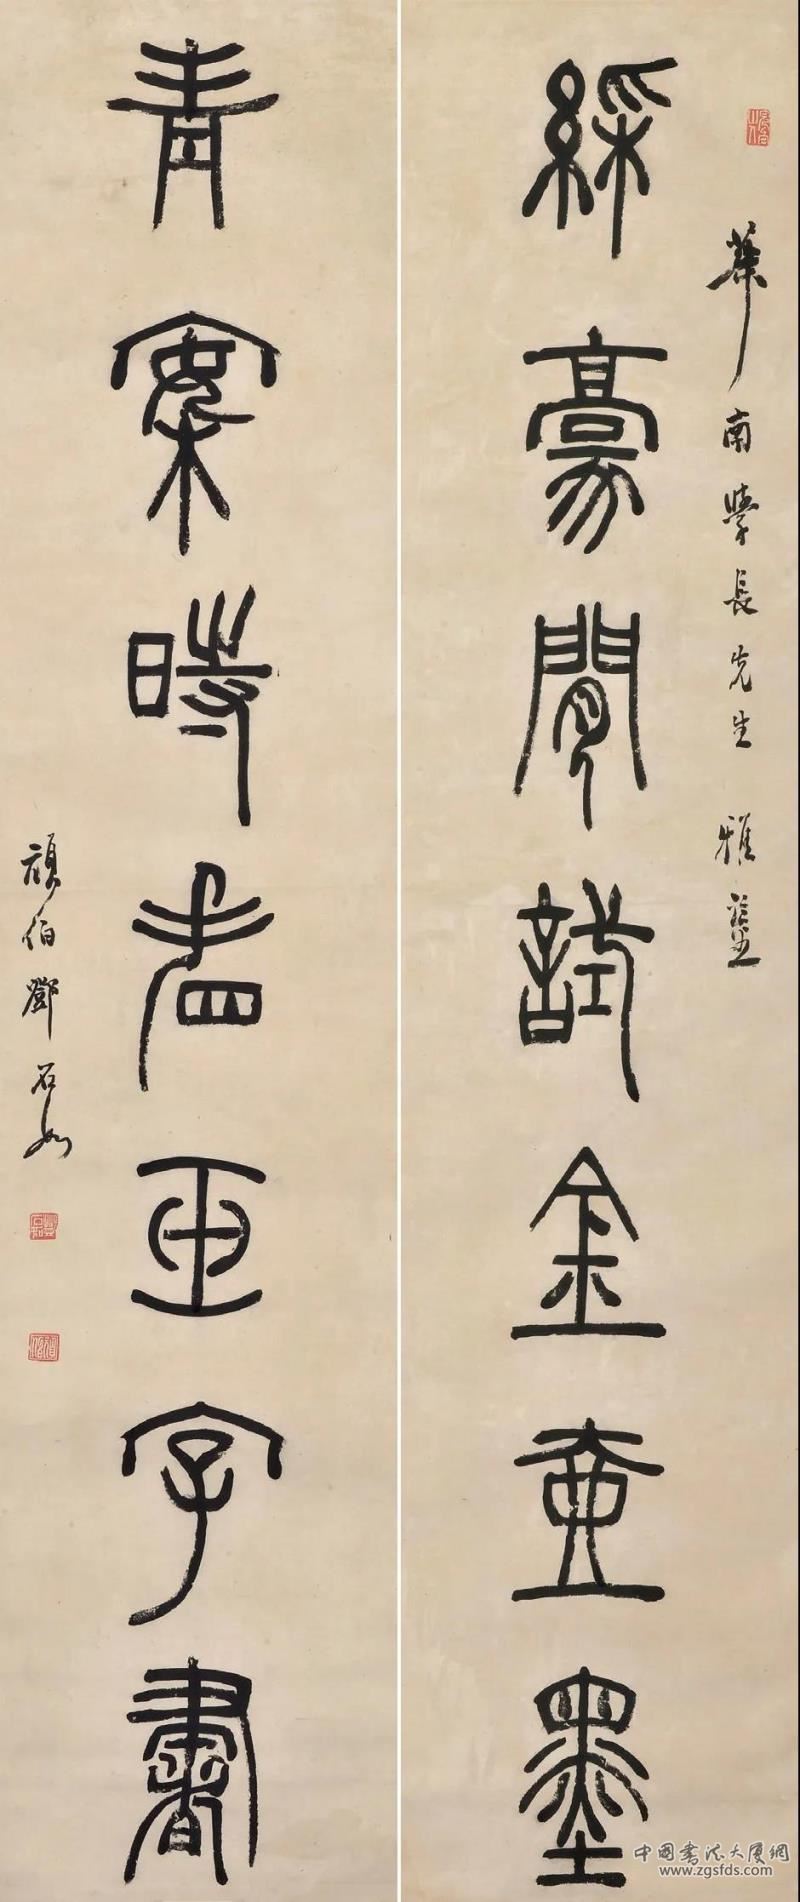 華南學長先生 雅鑒
綵豪閒試金壺墨
青案時看亞字書
頑伯鄧石如
中國書法大厦網
www.zgsfds.com